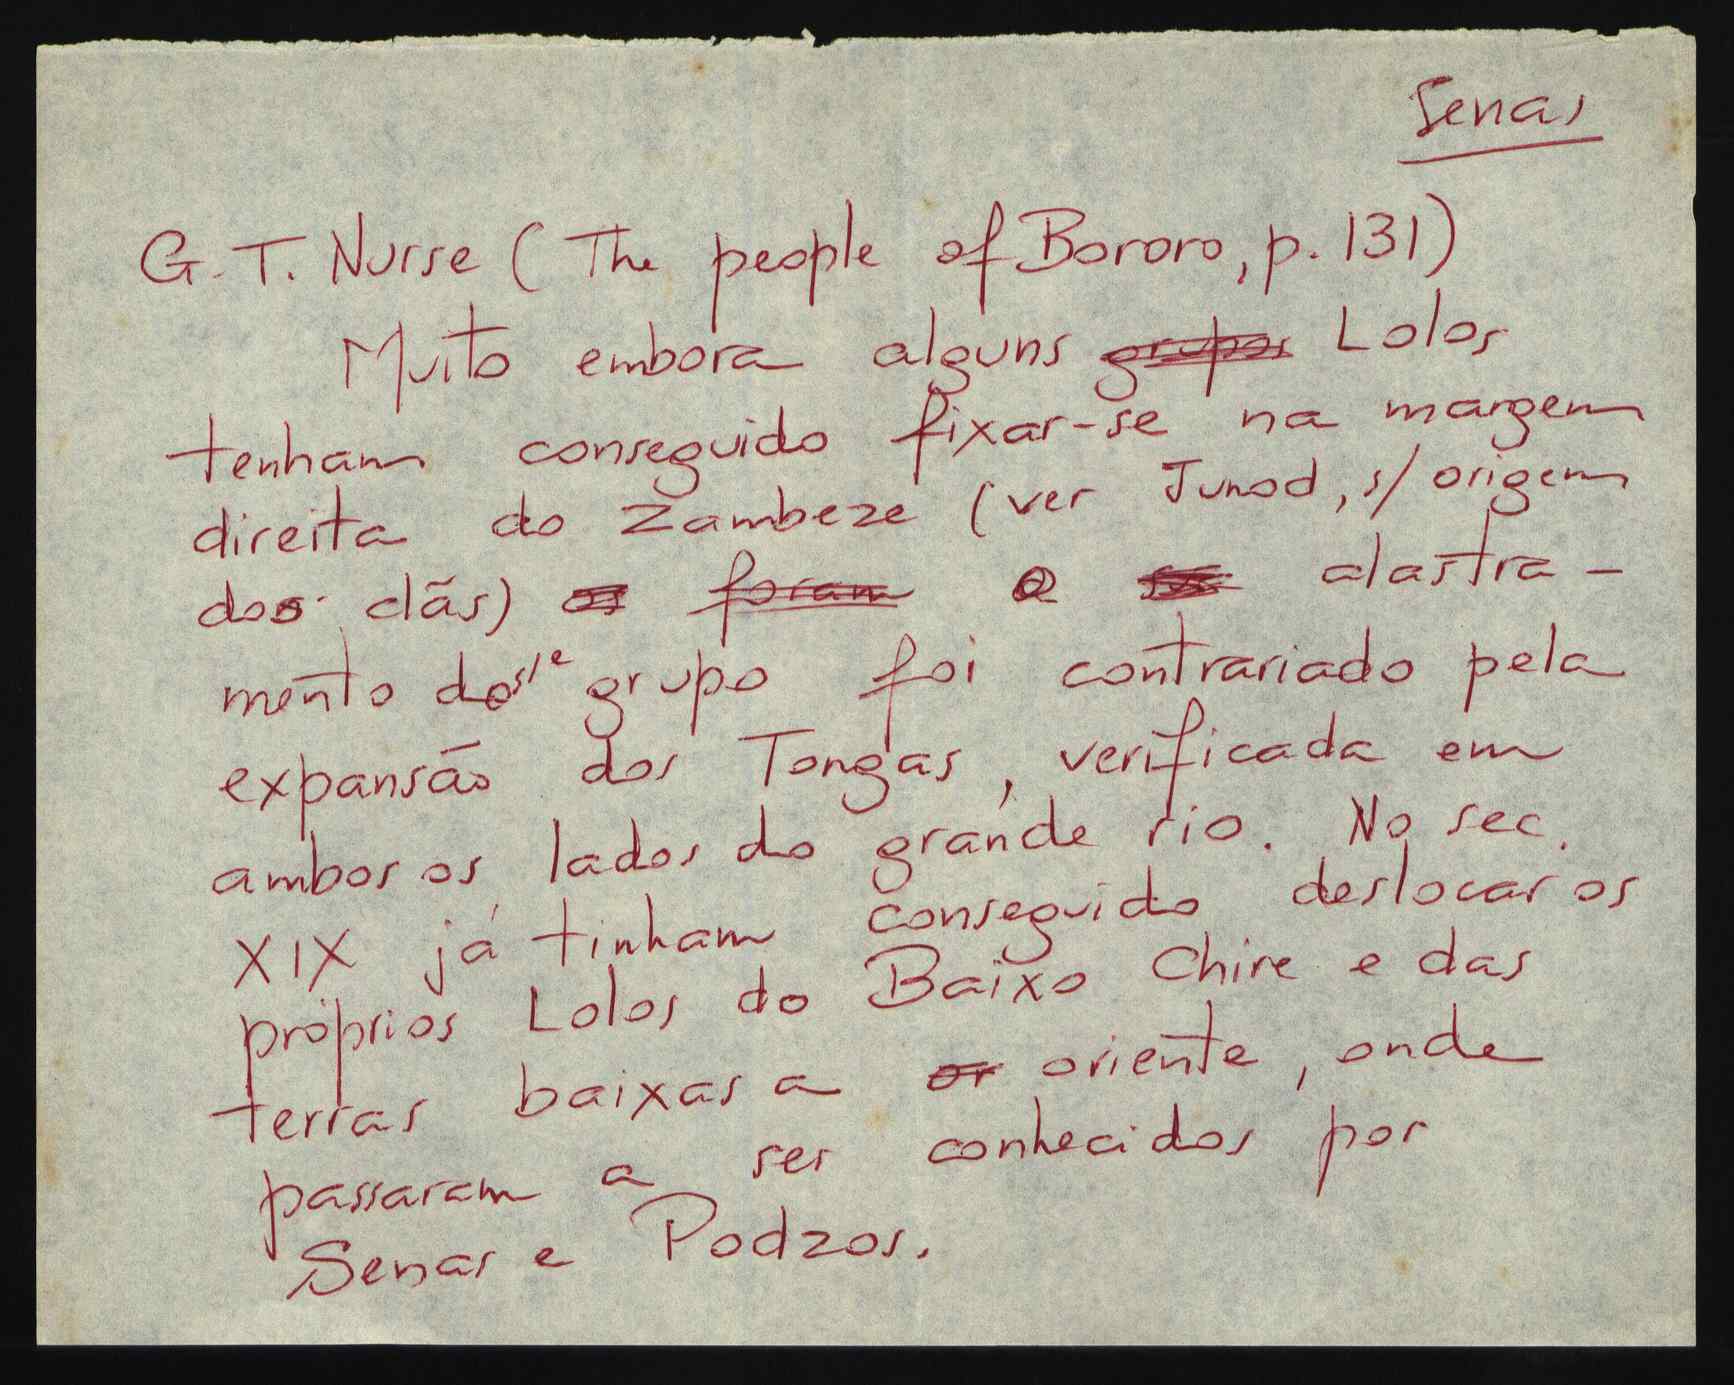 Senas
G. T. Nurse (The people of Bororo, p. 131)
Muito embora alguns grupos Lolos
tenham conseguido fixar-se na margem
direita do Zambeze (ver Junod, s/ origem
dos clãs) os foram o alastra-
mento deste grupo foi contrariado pela
expansão dos Tongas, verificada em
ambos os lados do grande rio. No sec.
XIX já tinham conseguido deslocar os
próprios Lolos do Baixo Chire e das
terras baixas a or oriente, onde
passaram a ser conhecidos por
Senas e Podzos.